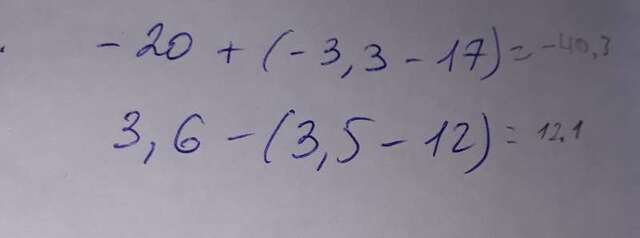 - 20 + (- 3,3 - 17) = -40,3
3,6 - (3,5 - 12) = 12,1